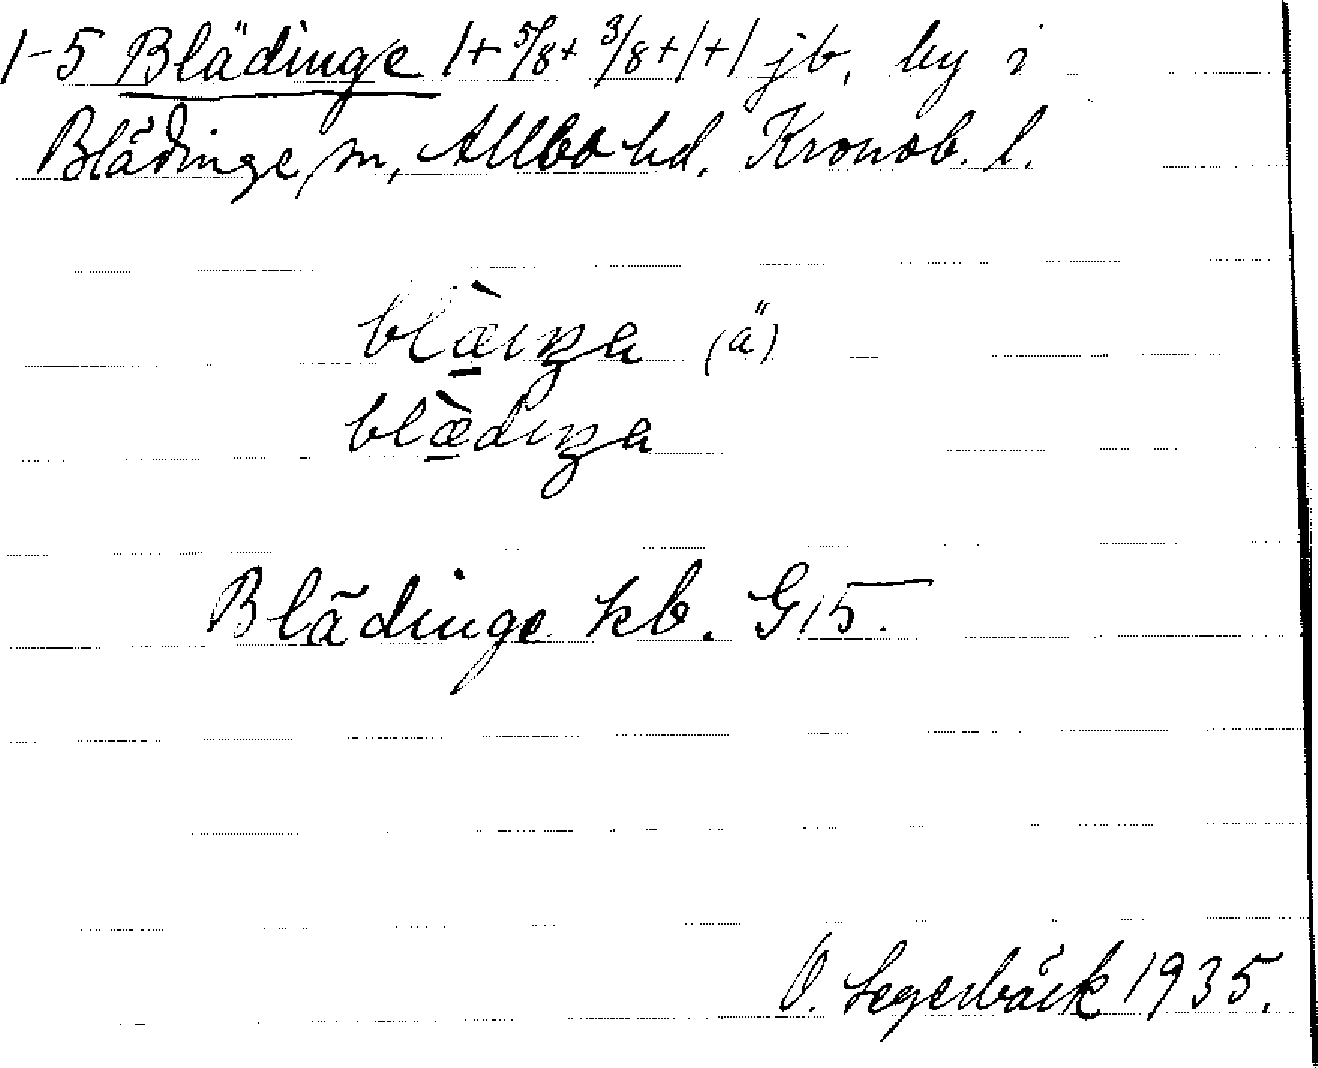 1-5 Blädinge 1+5/8+3/8+1+1 jb, by i
Blädinge sn, Allbo hd. Kronob. l.
blæ̀ıŋa (ä)
blæ̀dıŋa
Blädinge kb. G15.
O. Segerbäck 1935.